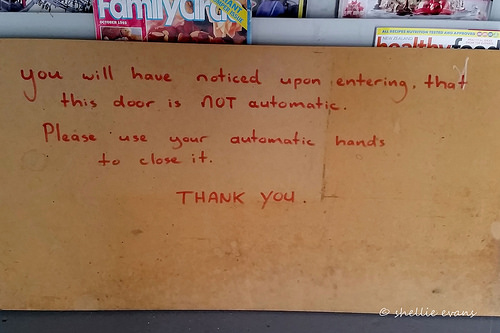 familycircle
OCTOBER
ALL RECIPES NUTRITION TESTED AND APPROVED
NEW ZEALAND
healthyfoo
you will have noticed upon entering, that
this door is NOT automatic.
Please use your automatic hands
to close it.
THANK YOU.
© shellie evans